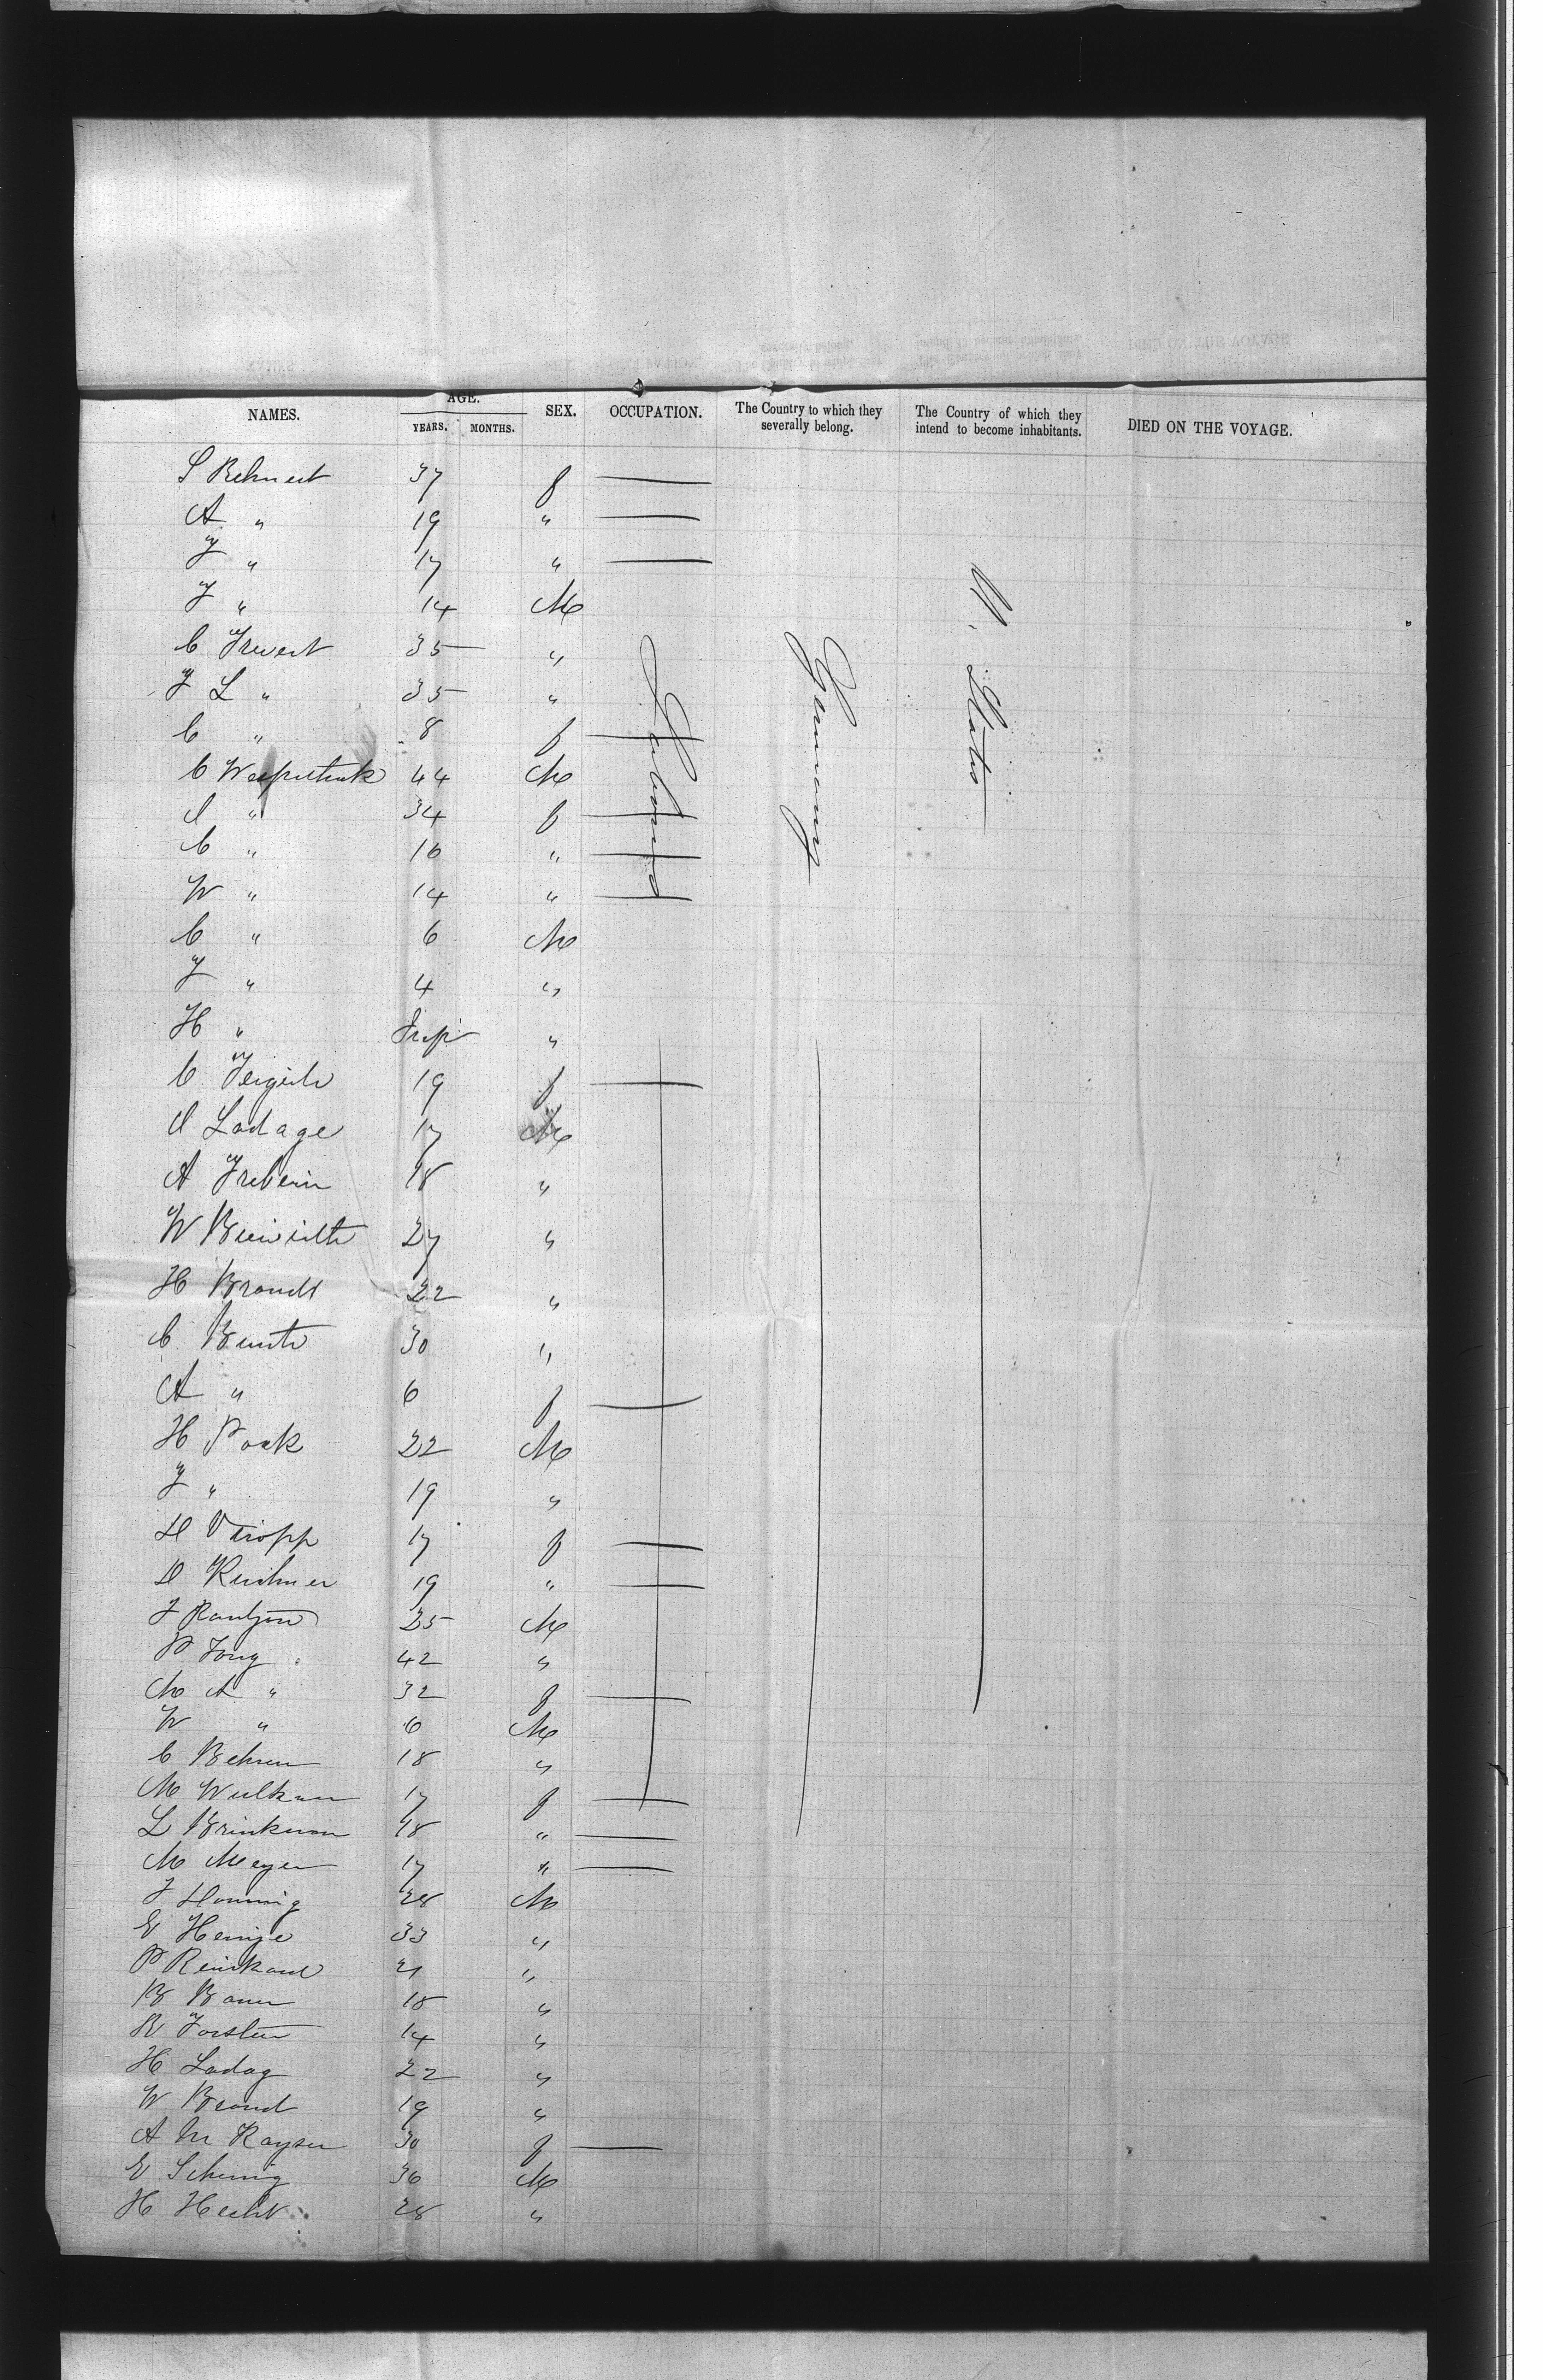 NAMES. AGE. YEARS. MONTHS. SEX. OCCUPATION. The Country to which they severally belong. The Country of which they intend to become inhabitants. DIED ON THE VOYAGE.
S Behnert 37 f ——
A " 19 " ——
J " 17 " ——
J " 14 M
C Frevert 35 "
J L " 35 "
C " 8 f ——
C 44 M
" 34 f ——
C " 16 " ——
W " 14 " ——
C " 6 M
J " 4 "
H " Inft "
Labourers
Germany
U. States
C 19 f ——
Ladage 17 M
A 18 "
W 27 "
H Brandt 22 "
C Bunte 30 "
A " 6 f ——
H Pook 22 M
J " 19 "
H 17 f ——
D Kirchner 19 " ——
J 25 M
P Jong 42 "
M A " 32 f ——
W " 6 M
C Behren 18 "
M Wulkan 17 f ——
L Brinkman 18 " ——
M Meyer 17 " ——
J Honning 28 M
E Heinze 33 "
P Reinhard 21 "
B Baum 18 "
R Forster 14 "
H Ladag 22 "
W Brand 19 "
A M Kayser 30 f ——
E 36 M
H Hecht 28 "